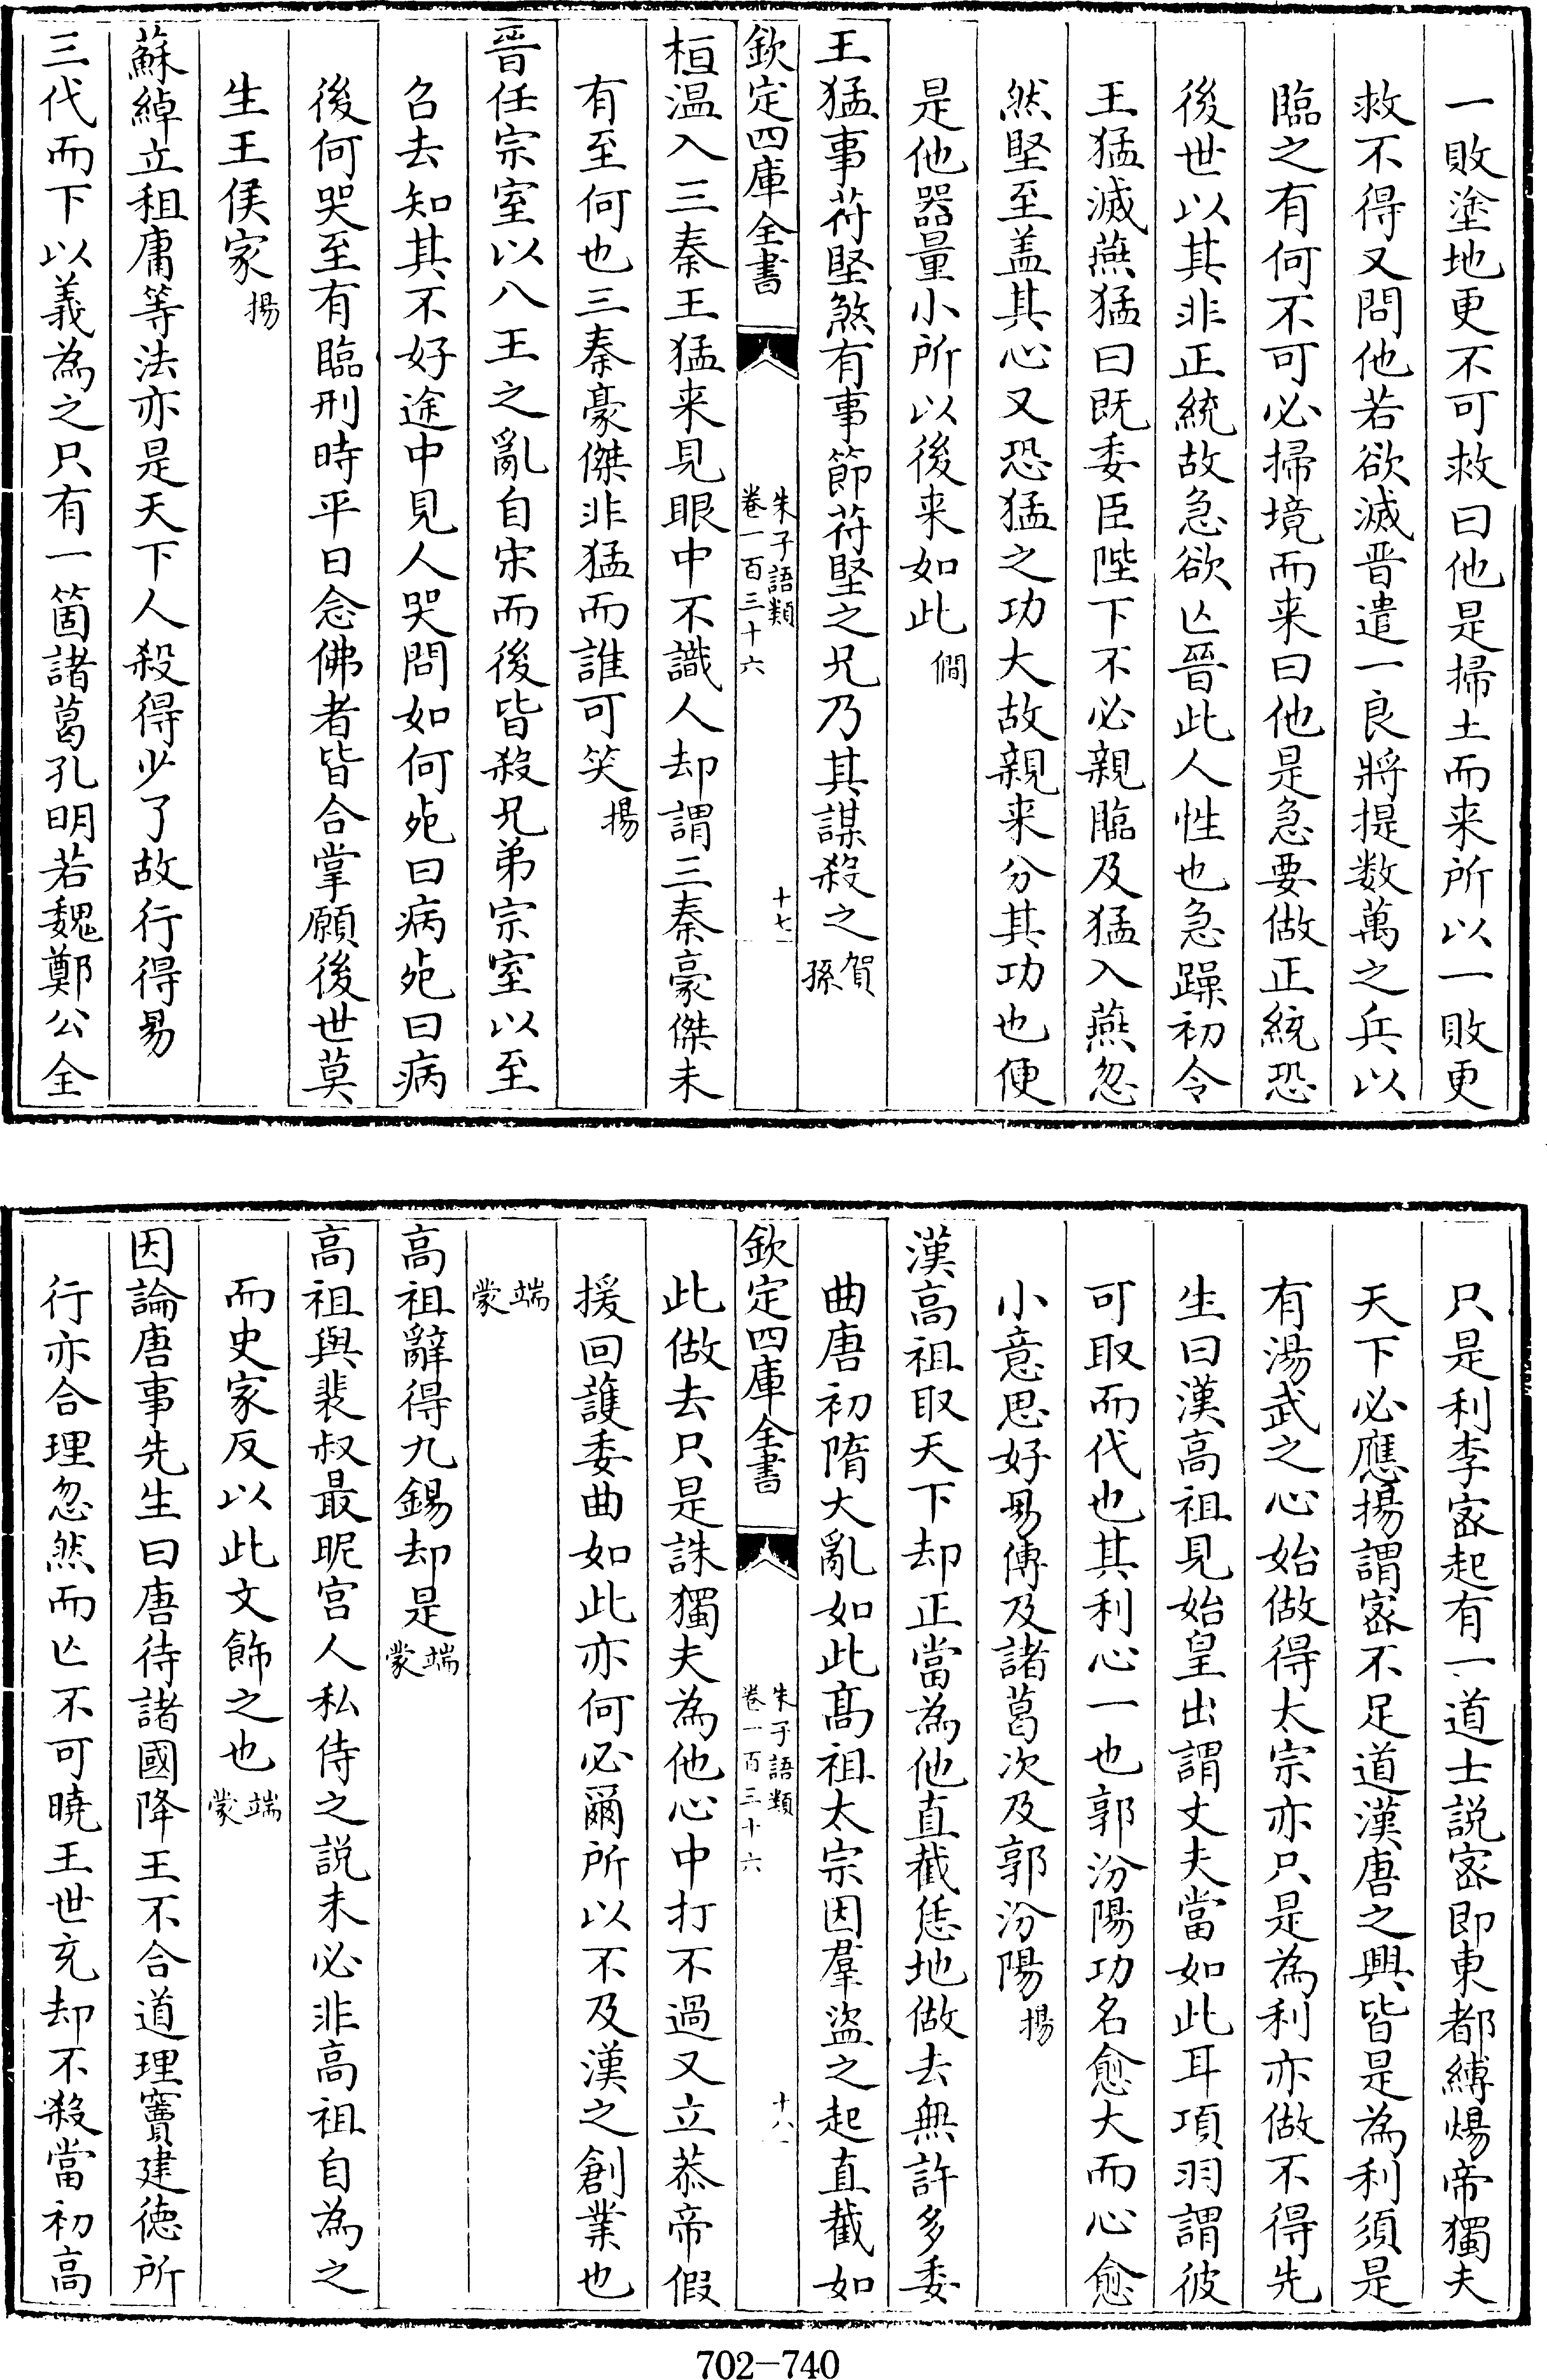 一敗塗地更不可救曰他是掃土而来所以一敗更
救不得又問他若欲滅晋遣一良將提数萬之兵以
臨之有何不可必掃境而来曰他是急要做正統恐
後世以其非正統故急欲亾晉此人性也急躁初令
王猛滅燕猛曰既委臣陛下不必親臨及猛入燕忽
然堅至盖其心又恐猛之功大故親来分其功也便
是他器量小所以後来如此 僩
王猛事苻堅煞有事節苻堅之兄乃其謀殺之 賀孫
欽定四庫全書 朱子語類 卷一百三十六 十七
桓温入三秦王猛来見眼中不識人却謂三秦豪傑未
有至何也三秦豪傑非猛而誰可笑 揚
晉任宗室以八王之亂自宋而後皆殺兄弟宗室以至
召去知其不好途中見人哭問如何死曰病死曰病
後何哭至有臨刑時平日念佛者皆合掌願後世莫
生王侯家 揚
蘇綽立租庸等法亦是天下人殺得少了故行得易
三代而下以義為之只有一箇諸葛孔明若魏鄭公全
只是利李密起有一道士説密即東都縛煬帝獨夫
天下必應揚謂密不足道漢唐之興皆是為利須是
有湯武之心始做得太宗亦只是為利亦做不得先
生曰漢高祖見始皇出謂丈夫當如此耳項羽謂彼
可取而代也其利心一也郭汾陽功名愈大而心愈
小意思好易傳及諸葛次及郭汾陽 揚
漢高祖取天下却正當為他直截恁地做去無許多委
曲唐初隋大亂如此高祖太宗因羣盜之起直截如
欽定四庫全書 朱子語類 卷一百三十六 十八
此做去只是誅獨夫為他心中打不過又立恭帝假
援回護委曲如此亦何必爾所以不及漢之創業也
端蒙
高祖辭得九錫却是 端蒙
高祖與裴叔最昵宫人私侍之説未必非高祖自為之
而史家反以此文飾之也 端蒙
因論唐事先生曰唐待諸國降王不合道理竇建德所
行亦合理忽然而亾不可曉王世充却不殺當初高
702-740